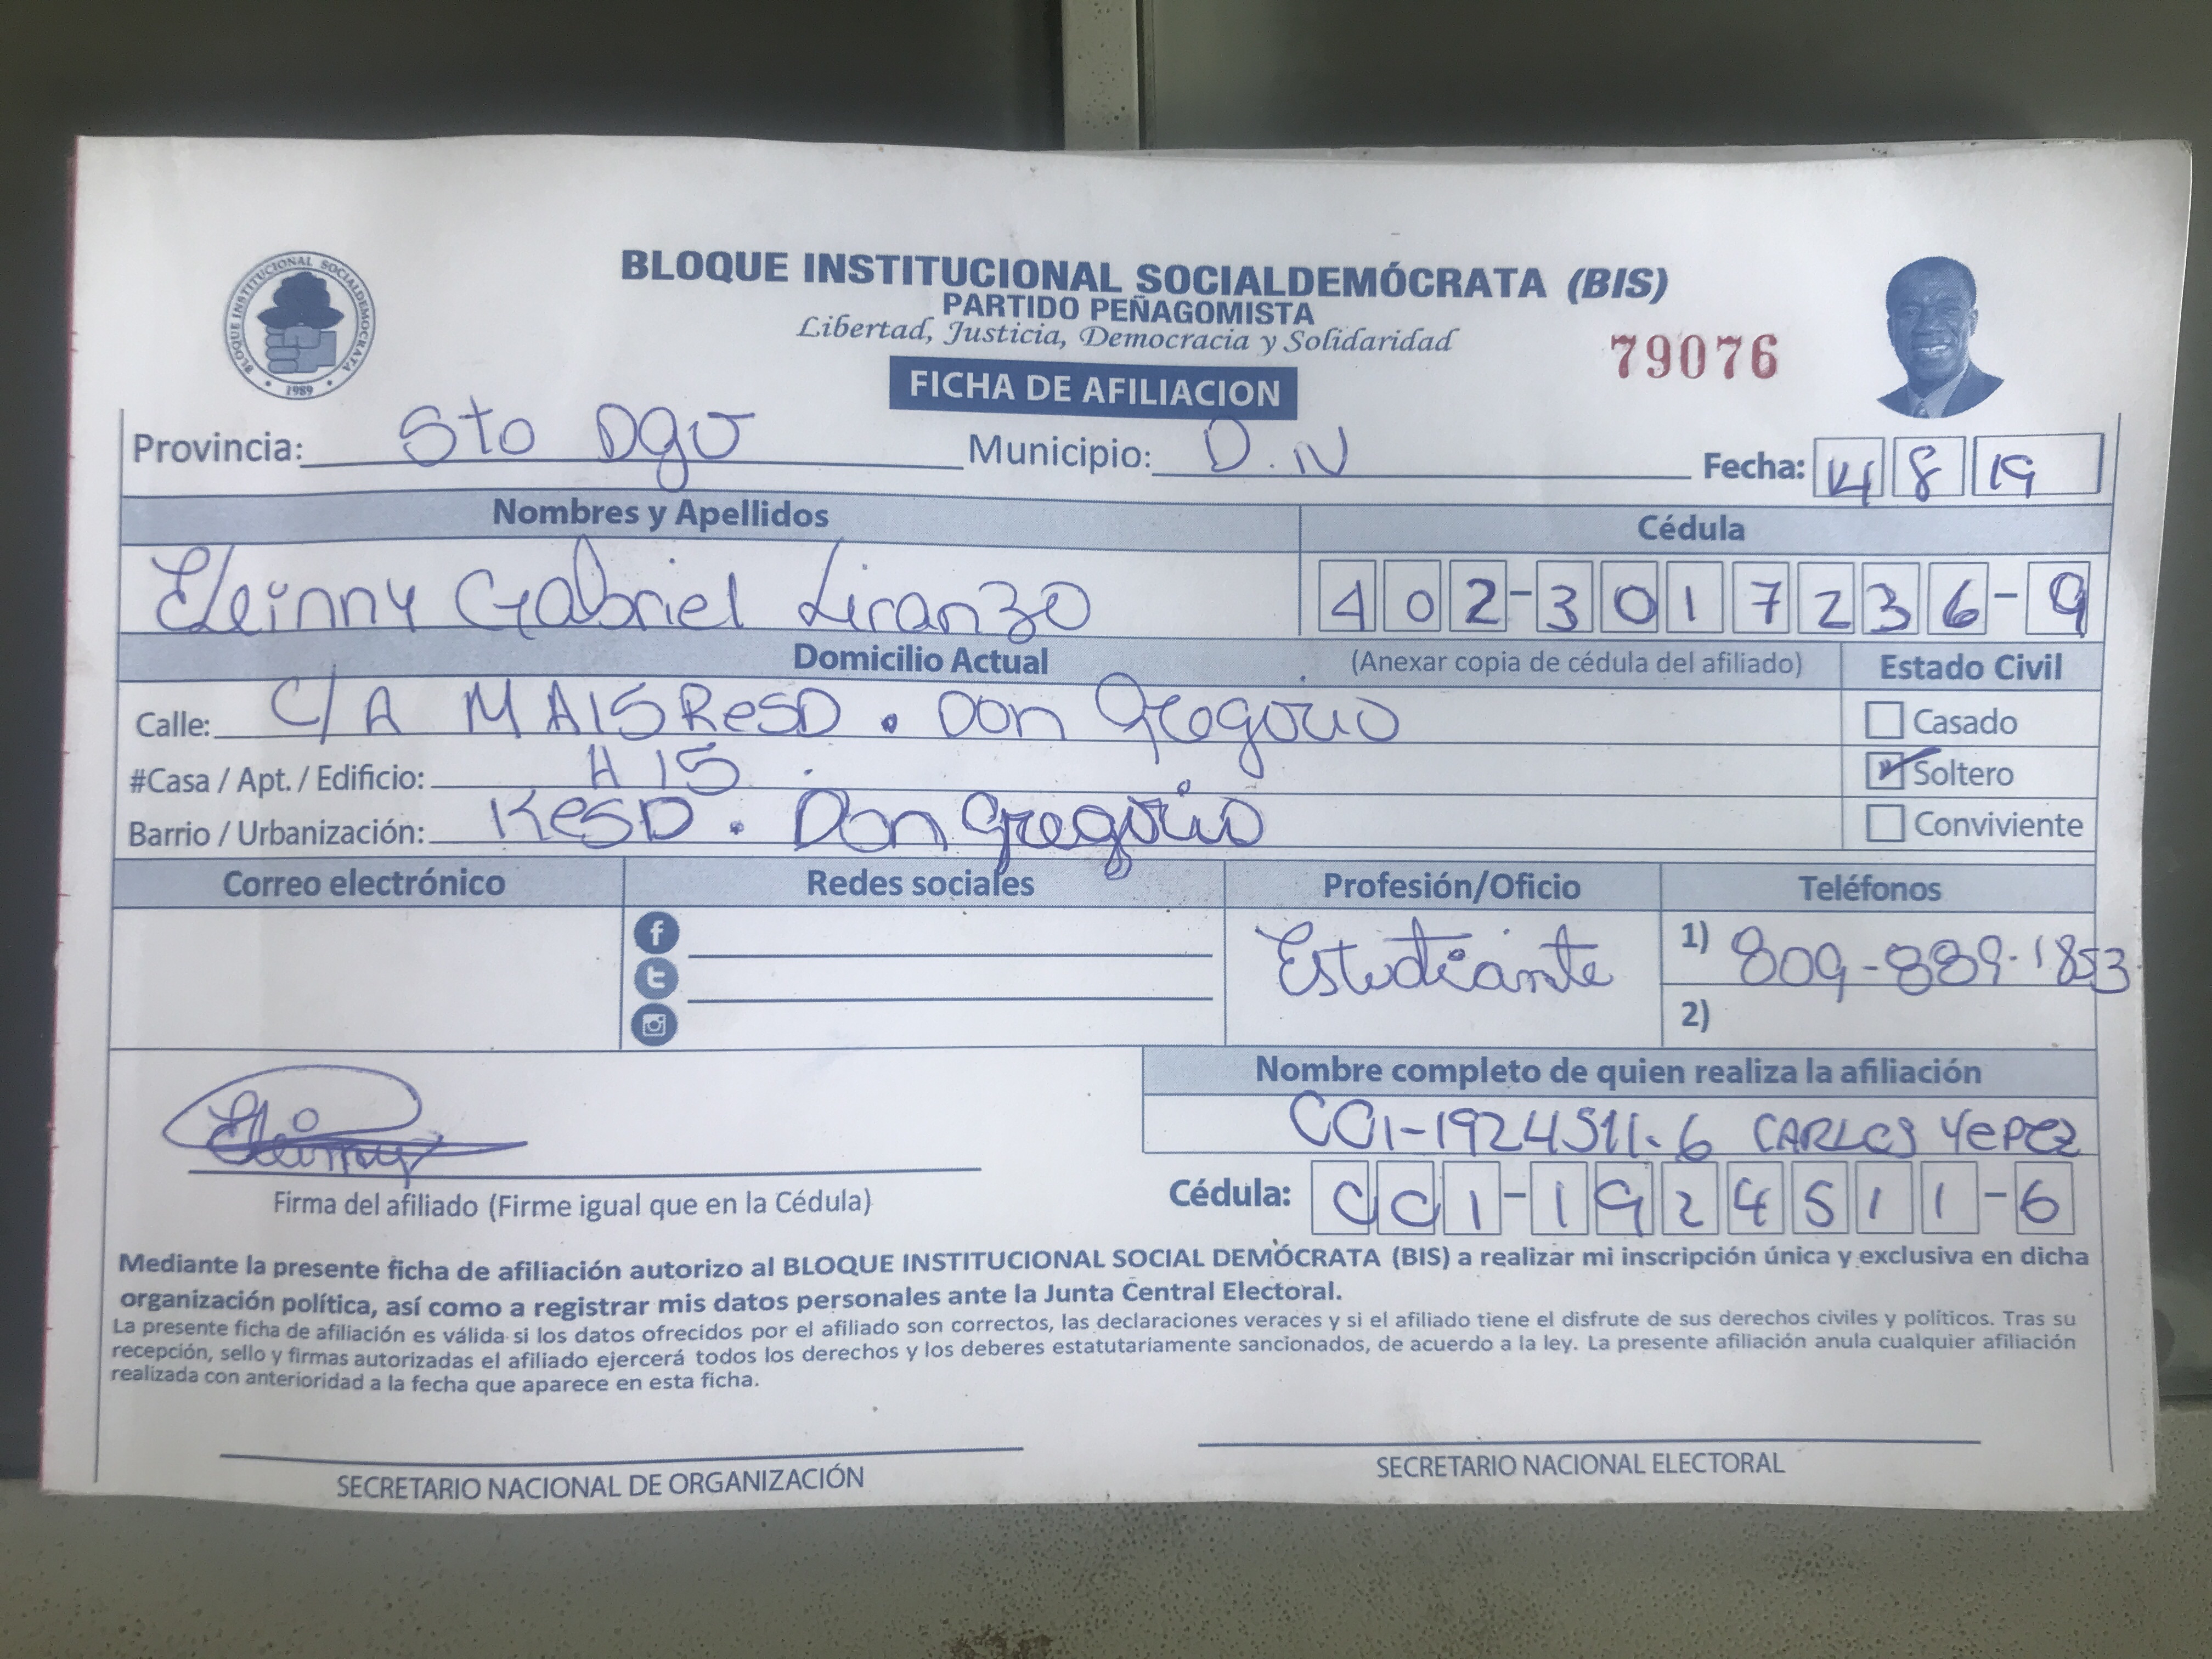 BLOQUE INSTITUCIONAL SOCIALDEMÓCRATA (BIS)
PARTIDO PEÑAGOMISTA
Libertad, Justicia, Democracia y Solidaridad
BLOQUE INSTITUCIONAL SOCIALDEMOCRATA
1989
79076
FICHA DE AFILIACION
Provincia: Sto Dgo Municipio: D.N Fecha: 14 8 19
Nombres y Apellidos Cédula
Eleinny Gabriel Liranzo 402-3017236-9
Domicilio Actual (Anexar copia de cédula del afiliado) Estado Civil
Calle: C/A MA15 ResD. Don Gregorio Casado
#Casa / Apt. / Edificio: A 15 Soltero
Barrio / Urbanización: ResD. Don Gregorio Conviviente
Correo electrónico Redes sociales Profesión/Oficio Teléfonos
Estudiante 1) 809-889-1853
2)
Nombre completo de quien realiza la afiliación
001-1924511-6 CARLOS YePez
Eleinny
Firma del afiliado (Firme igual que en la Cédula) Cédula: 001-1924511-6
Mediante la presente ficha de afiliación autorizo al BLOQUE INSTITUCIONAL SOCIAL DEMÓCRATA (BIS) a realizar mi inscripción única y exclusiva en dicha
organización política, así como a registrar mis datos personales ante la Junta Central Electoral.
La presente ficha de afiliación es válida si los datos ofrecidos por el afiliado son correctos, las declaraciones veraces y si el afiliado tiene el disfrute de sus derechos civiles y políticos. Tras su
recepción, sello y firmas autorizadas el afiliado ejercerá todos los derechos y los deberes estatutariamente sancionados, de acuerdo a la ley. La presente afiliación anula cualquier afiliación
realizada con anterioridad a la fecha que aparece en esta ficha.
SECRETARIO NACIONAL DE ORGANIZACIÓN SECRETARIO NACIONAL ELECTORAL